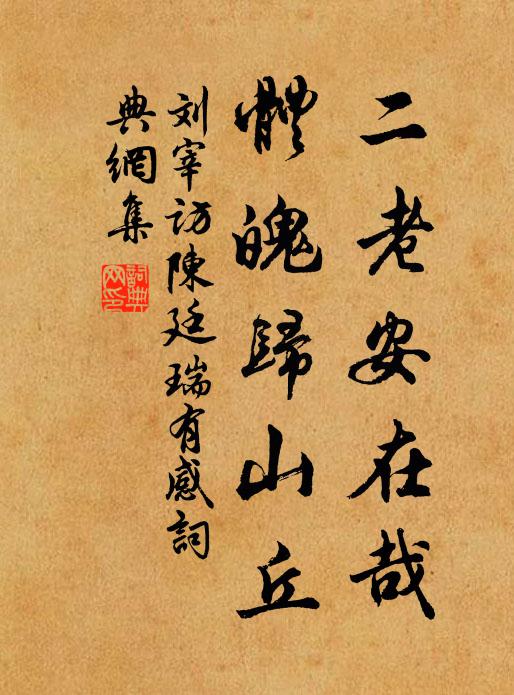 二老安在哉
體魄歸山丘
刘宰访陳廷瑞有感詞
典網集
詞典網印